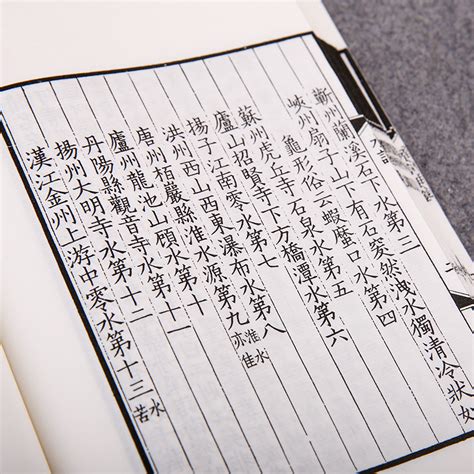 蘄州蘭溪石下水第三
峽州扇子山下有石突然洩水獨清冷狀女
龜形俗云蝦蟇口水第四
蘇州虎丘寺石泉水第五
廬山招賢寺下方橋潭水第六
揚子江南零水第七
洪州西山西東瀑布水第八
唐州柏巖縣淮水源第九淮水亦佳
廬州龍池山顧水第十
丹陽縣觀音寺水第十一
揚州大明寺水第十二
漢江金州上游中零水第十三水苦